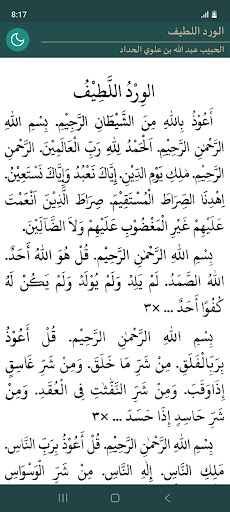 8:17
الورد اللطيف
الحبيب عبد الله بن علوي الحداد
الوِرْدُ اللَّطِيْفُ
أَعُوْذُ بِاللهِ مِنَ الشَّيْطَانِ الرَّجِيْمِ. بِسْمِ اللهِ
الرَّحْمٰنِ الرَّحِيْمِ. اَلْحَمْدُ لِلّٰهِ رَبِّ الْعَالَمِيْنَ. الرَّحْمٰنِ
الرَّحِيْمِ. مٰلِكِ يَوْمِ الدِّيْنِ. إِيَّاكَ نَعْبُدُ وَإِيَّاكَ نَسْتَعِيْنُ.
اِهْدِنَا الصِّرَاطَ الْمُسْتَقِيْمَ. صِرَاطَ الَّذِيْنَ أَنْعَمْتَ
عَلَيْهِمْ غَيْرِ الْمَغْضُوْبِ عَلَيْهِمْ وَلَا الضَّالِّيْنَ.
بِسْمِ اللهِ الرَّحْمٰنِ الرَّحِيْمِ. قُلْ هُوَ اللهُ أَحَدٌ.
اَللهُ الصَّمَدُ. لَمْ يَلِدْ وَلَمْ يُوْلَدْ وَلَمْ يَكُنْ لَهُ
كُفُوًا أَحَدٌ ... ×٣
بِسْمِ اللهِ الرَّحْمٰنِ الرَّحِيْمِ. قُلْ أَعُوْذُ
بِرَبِّ الْفَلَقِ. مِنْ شَرِّ مَا خَلَقَ. وَمِنْ شَرِّ غَاسِقٍ
إِذَا وَقَبَ. وَمِنْ شَرِّ النَّفّٰثٰتِ فِي الْعُقَدِ. وَمِنْ
شَرِّ حَاسِدٍ إِذَا حَسَدَ ... ×٣
بِسْمِ اللهِ الرَّحْمٰنِ الرَّحِيْمِ. قُلْ أَعُوْذُ بِرَبِّ النَّاسِ.
مَلِكِ النَّاسِ. إِلٰهِ النَّاسِ. مِنْ شَرِّ الْوَسْوَاسِ